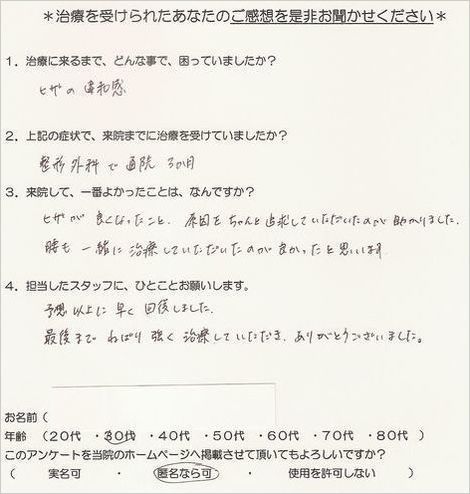 ＊治療を受けられたあなたのご感想を是非お聞かせください＊
1．治療に来るまで、どんな事で、困っていましたか？
ヒザの違和感
2．上記の症状で、来院までに治療を受けていましたか？
整形外科で通院 3か月
3．来院して、一番よかったことは、なんですか？
ヒザが良くなったこと。原因をちゃんと追求していただいたのが助かりました。
腰も一緒に治療していただいたのが良かったと思います
4．担当したスタッフに、ひとことお願いします。
予想以上に早く回復しました。
最後までねばり強く治療していただき、ありがとうございました。
お名前（
年齢 （20代 ・30代 ・40代 ・50代 ・60代 ・70代 ・80代 ）
このアンケートを当院のホームページへ掲載させて頂いてもよろしいですか？
（ 実名可 ・ 匿名なら可 ・ 使用を許可しない ）